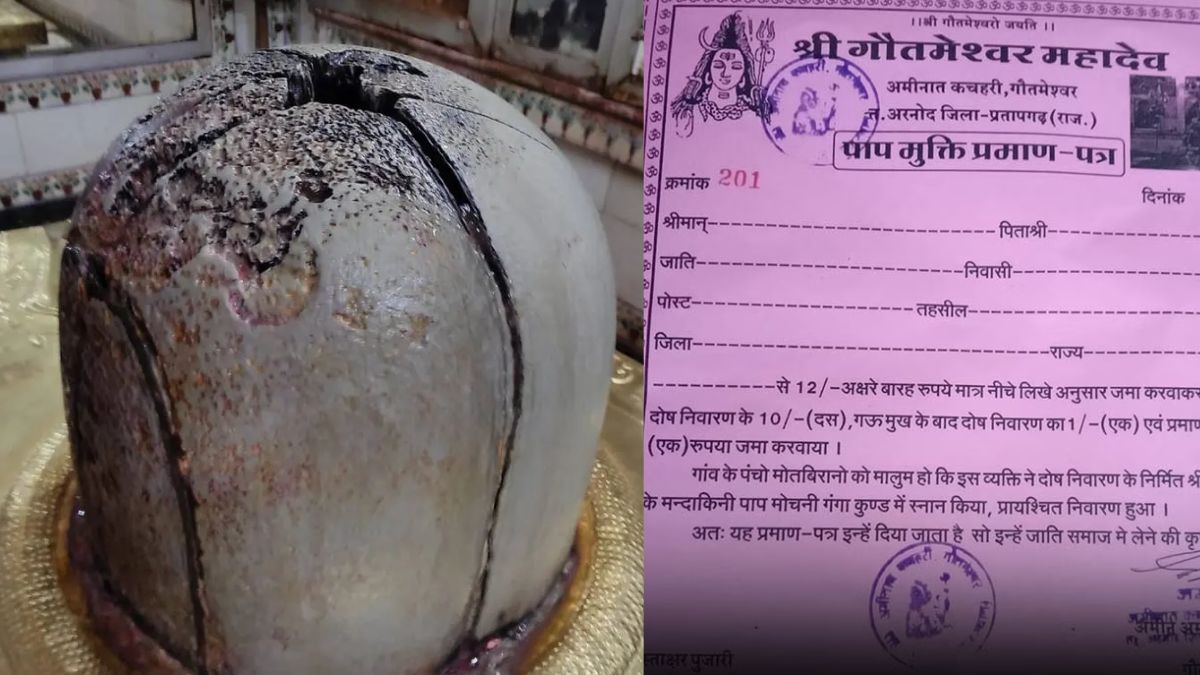 ।।श्री गौतमेश्वरो जयति ।।
श्री गौतमेश्वर महादेव
अमीनात कचहरी,गौतमेश्वर
त.अरनोद जिला-प्रतापगढ़(राज.)
पाप मुक्ति प्रमाण-पत्र
क्रमांक 201 दिनांक
श्रीमान्------------------------पिताश्री------------
जाति------------------------निवासी----------------
पोस्ट--------------------तहसील--------------------
जिला------------------------------राज्य----------
-----------से 12/-अक्षरे बारह रुपये मात्र नीचे लिखे अनुसार जमा करवाकर
दोष निवारण के 10/-(दस),गऊमुख के बाद दोष निवारण का 1/-(एक) एवं प्रमाण
(एक)रुपया जमा करवाया ।
गांव के पंचो मोतबिरानो को मालुम हो कि इस व्यक्ति ने दोष निवारण के निर्मित श्री
के मन्दाकिनी पाप मोचनी गंगा कुण्ड में स्नान किया, प्रायश्चित निवारण हुआ ।
अतः यह प्रमाण-पत्र इन्हें दिया जाता है सो इन्हें जाति समाज मे लेने की
अमीनात कचहरी गौतमेश्वर
पुजारी